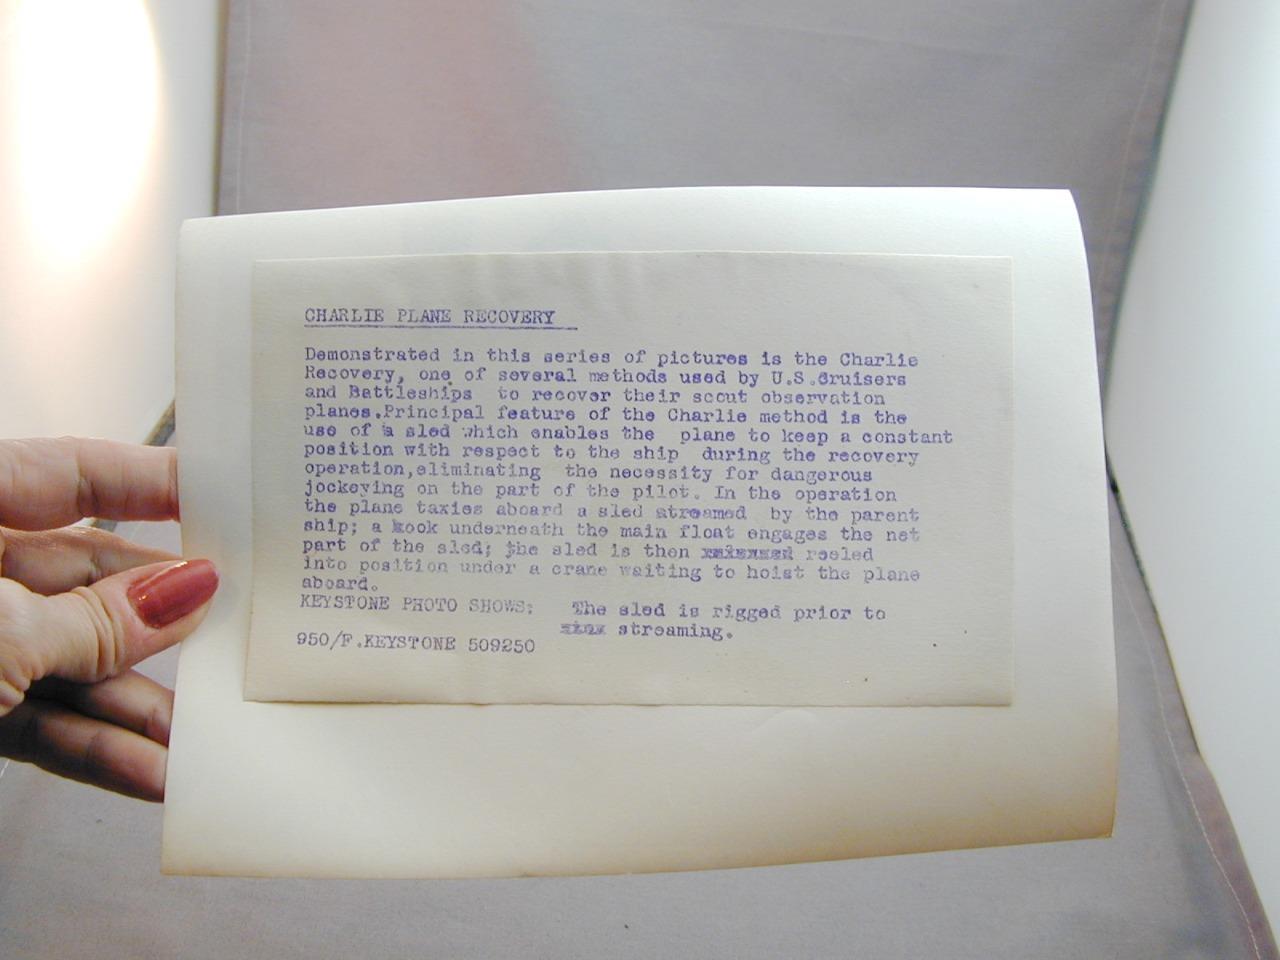 CHARLIE PLANE RECOVERY
Demonstrated in this series of pictures is the Charlie
Recovery, one of several methods used by U.S.Cruisers
and Battleships to recover their scout observation
planes.Principal feature of the Charlie method is the
use of a sled which enables the plane to keep a constant
position with respect to the ship during the recovery
operation,eliminating the necessity for dangerous
jockeying on the part of the pilot. In the operation
the plane taxies aboard a sled streamed by the parent
ship; a hook underneath the main float engages the net
part of the sled; the sled is then reeled
into position under a crane waiting to hoist the plane
aboard.
KEYSTONE PHOTO SHOWS: The sled is rigged prior to
streaming.
950/F.KEYSTONE 509250